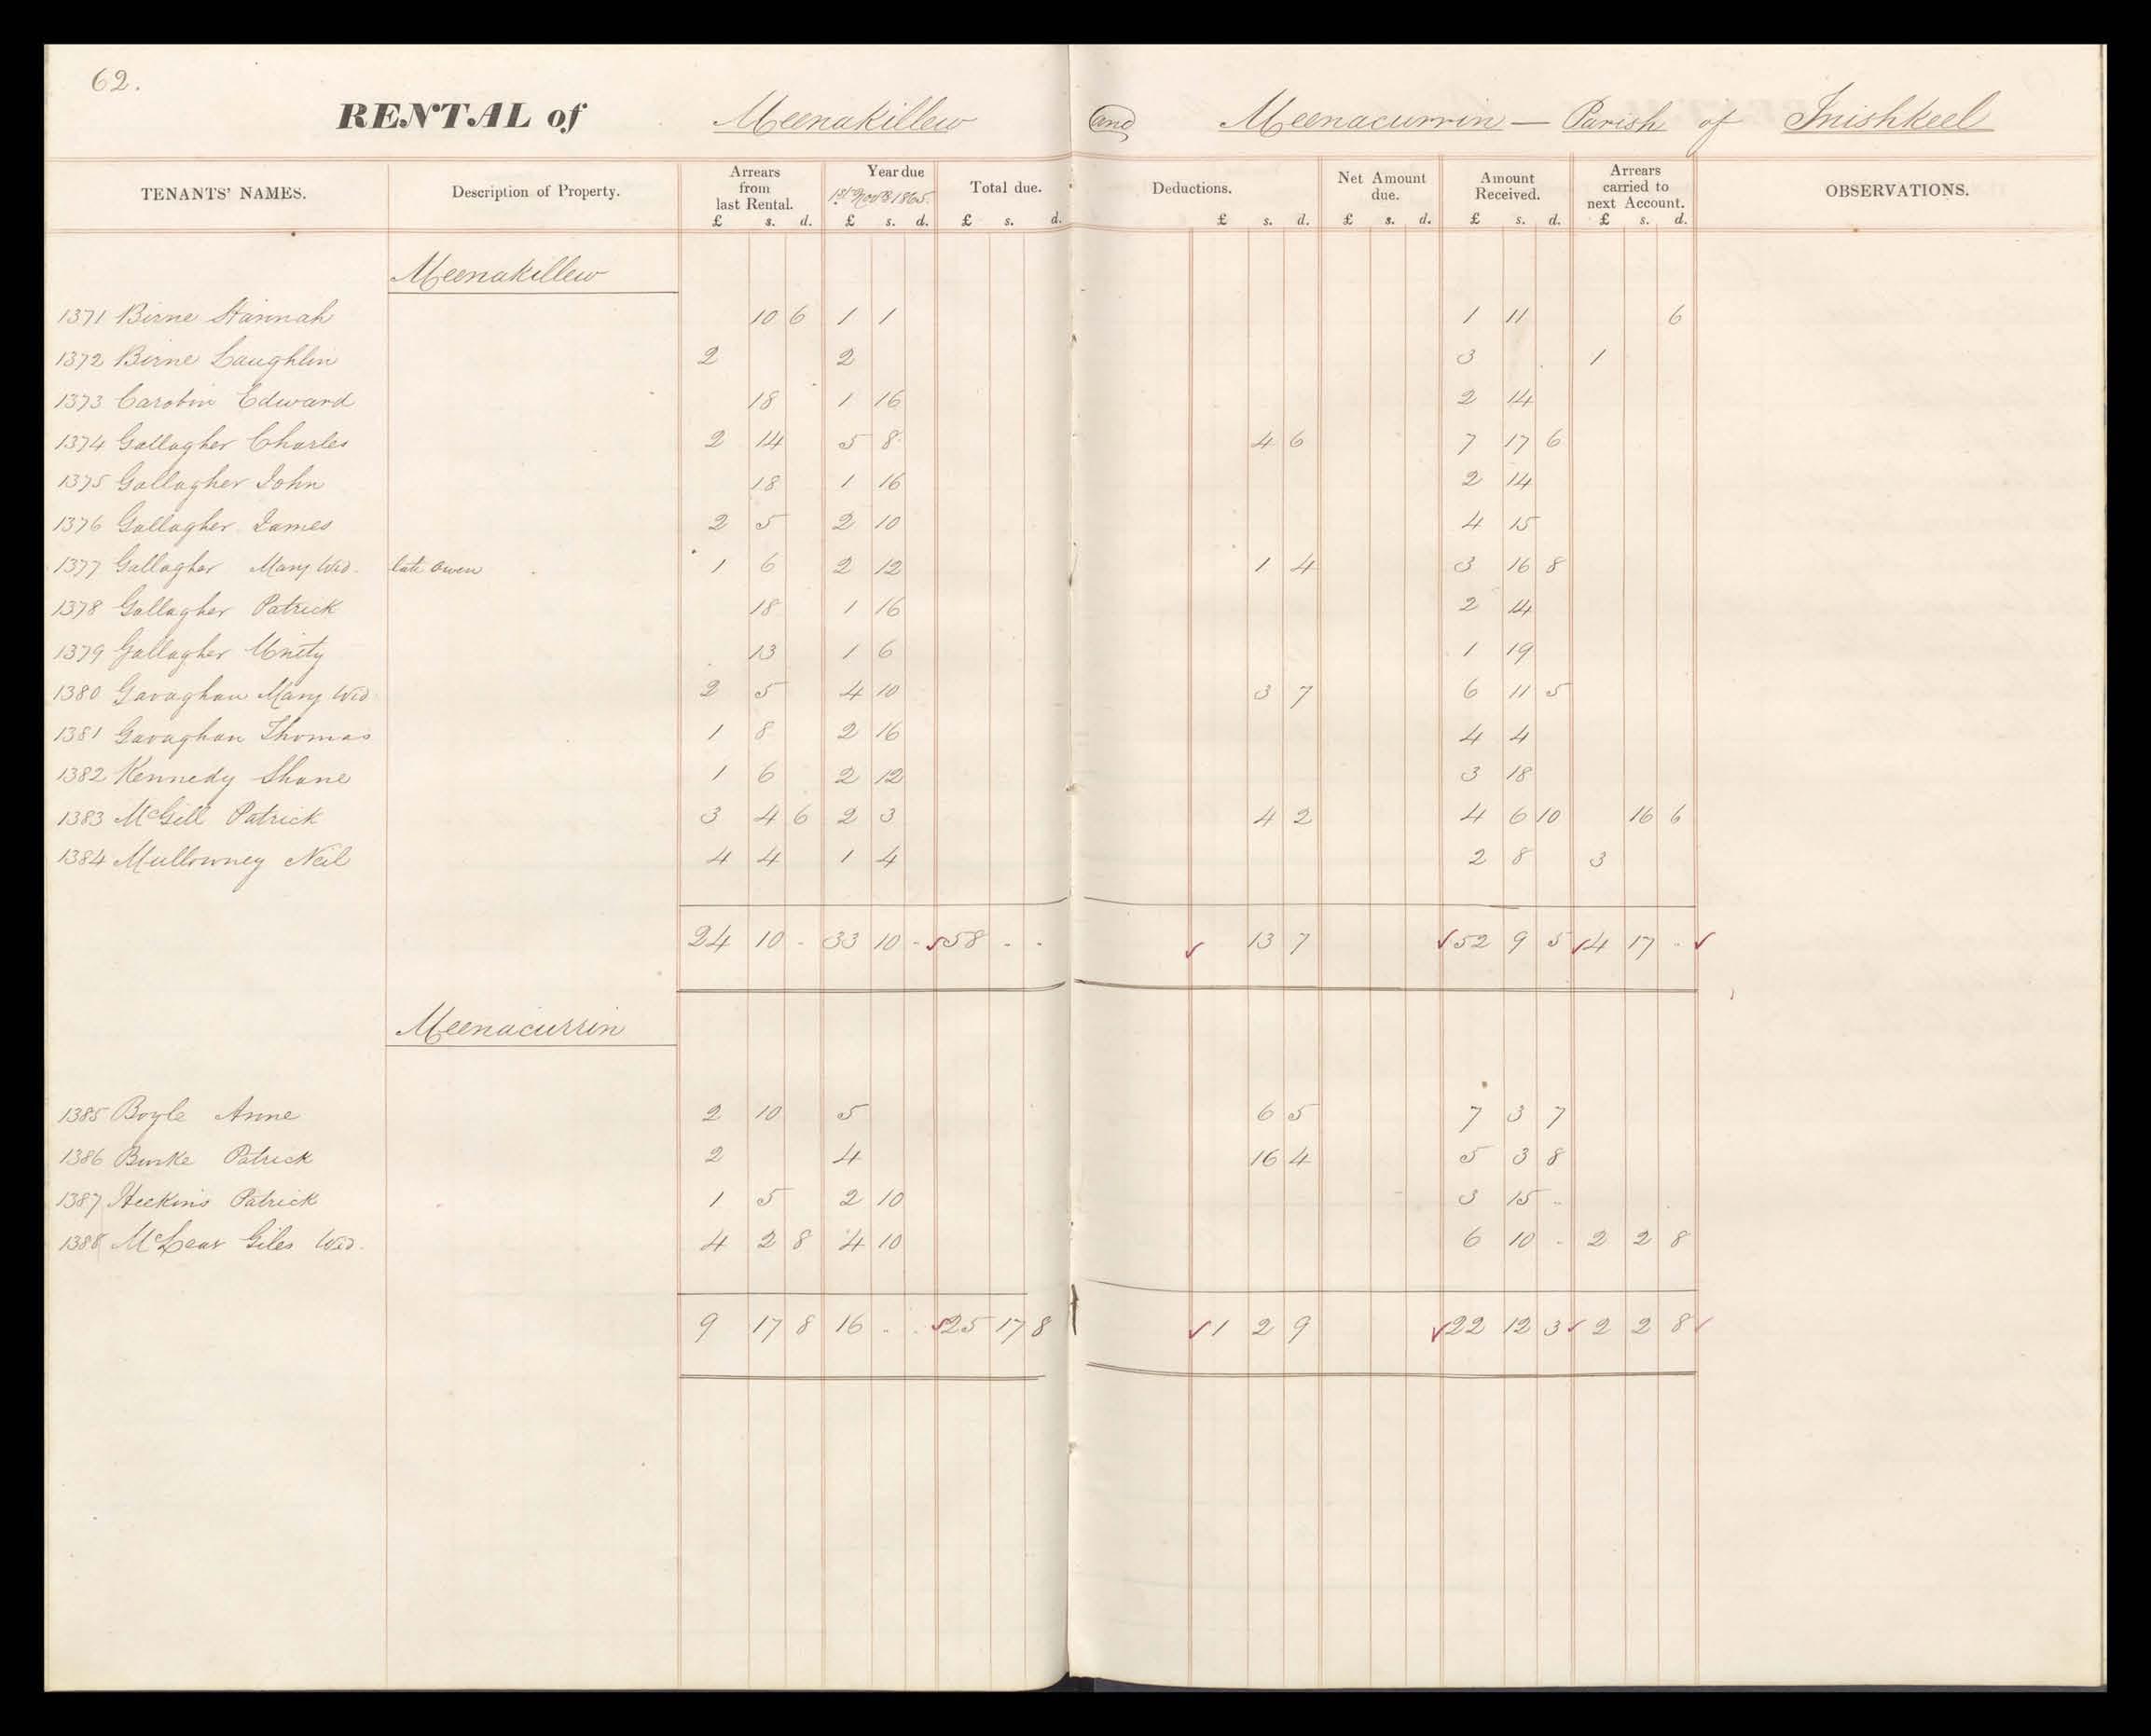 62.
RENTAL of Meenakillew and Meenacurrin — Parish of Inishkeel
TENANTS' NAMES. Description of Property. Arrears from last Rental. £ s. d. Year due 1st Novr 1865. £ s. d. Total due. £ s. d. Deductions. £ s. d. Net Amount due. £ s. d. Amount Received. £ s. d. Arrears carried to next Account. £ s. d. OBSERVATIONS.
Meenakillew
1371 Birne Hannah 10 6 1 1 1 11 6
1372 Birne Laughlin 2 2 3 1
1373 Carobin Edward 18 1 16 2 14
1374 Gallagher Charles 2 14 5 8 4 6 7 17 6
1375 Gallagher John 18 1 16 2 14
1376 Gallagher James 2 5 2 10 4 15
1377 Gallagher Mary Wid. late Owen 1 6 2 12 1 4 3 16 8
1378 Gallagher Patrick 18 1 16 2 14
1379 Gallagher Unity 13 1 6 1 19
1380 Gavaghan Mary Wid 2 5 4 10 3 7 6 11 5
1381 Gavaghan Thomas 1 8 2 16 4 4
1382 Kennedy Shane 1 6 2 12 3 18
1383 McGill Patrick 3 4 6 2 3 4 2 4 6 10 16 6
1384 Mullowney Neil 4 4 1 4 2 8 3
24 10 - 33 10 - 58 - - 13 7 52 9 5 4 17 -
Meenacurrin
1385 Boyle Anne 2 10 5 6 5 7 3 7
1386 Burke Patrick 2 4 16 4 5 3 8
1387 Heekins Patrick 1 5 2 10 3 15 -
1388 McLear Giles Wid. 4 2 8 4 10 6 10 - 2 2 8
9 17 8 16 - - 25 17 8 1 2 9 22 12 3 2 2 8